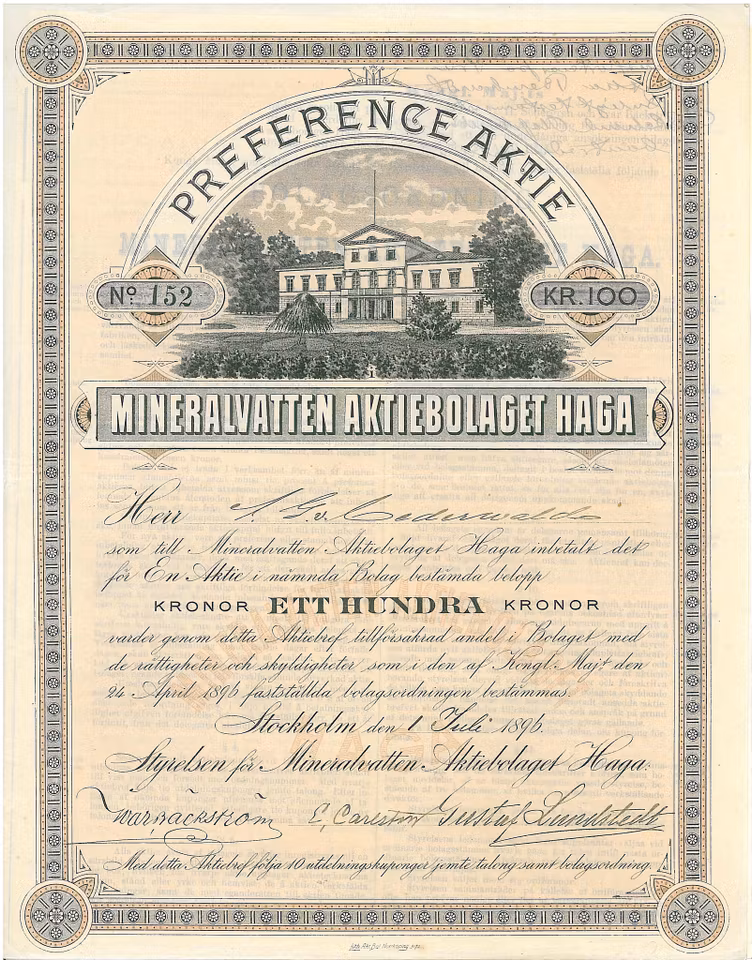 PREFERENCE AKTIE
Nº 152
KR. 100
MINERALVATTEN AKTIEBOLAGET HAGA
Herr
som till Mineralvatten Aktiebolaget Haga inbetalt det
för En Aktie i nämnda Bolag bestämda belopp
KRONOR ETT HUNDRA KRONOR
varder genom detta Aktiebref tillförsäkrad andel i Bolaget med
de rättigheter och skyldigheter som i den af Kongl. Maj:t den
24 April 1896 fastställda bolagsordningen bestämmas.
Stockholm den 1 Juli 1896.
Styrelsen för Mineralvatten Aktiebolaget Haga:
E. Carlston Gustaf Lundstedt
Med detta Aktiebref följa 10 utdelningskuponger jemte talong samt bolagsordning.